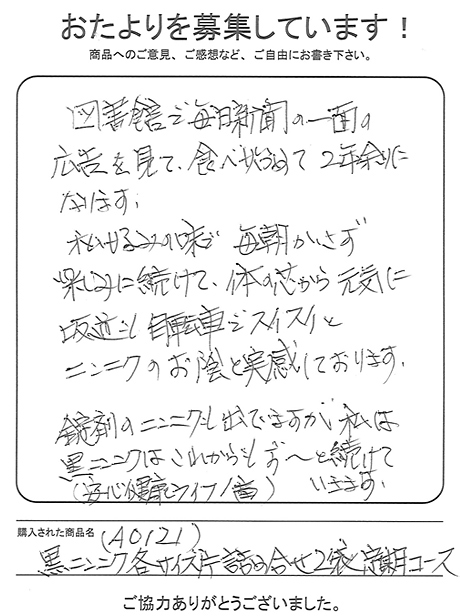 おたよりを募集しています！
商品へのご意見、ご感想など、ご自由にお書き下さい。
図書館で毎日新聞の一面の
広告を見て、食べ始めて2年余りに
なります。
私好みの味で毎朝かかさず
楽しみに続けて、体の芯から元気に
坂道も自転車でスイスイと
ニンニクのお陰と実感しております。
錠剤のニンニクも出てますが、私は
黒ニンニクはこれからもず〜と続けて
いきます。
(安心健康ライフノ
購入された商品名
(A0121)
黒ニンニク各サイズ片詰め合せ2袋定期コース
ご協力ありがとうございました。